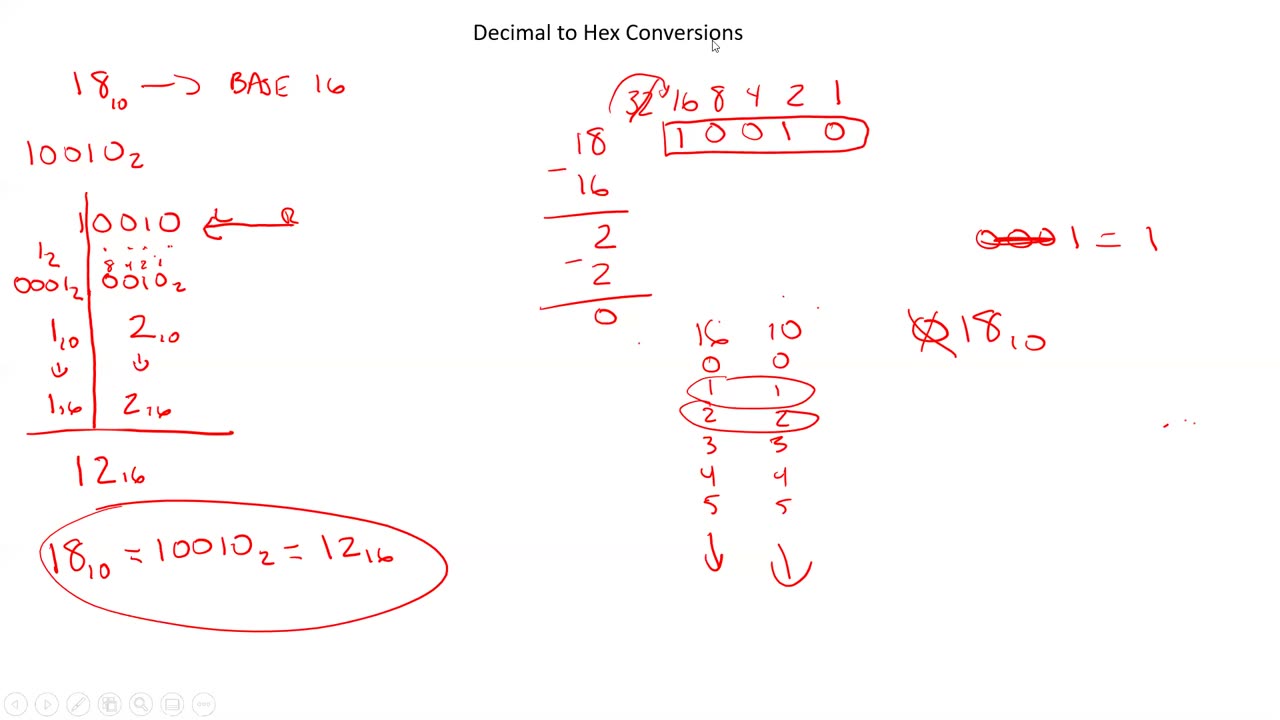 Decimal to Hex Conversions
18₁₀ → BASE 16
10010₂
1 0010 ← L R
1₂
8 4 2 1
0001₂ 0010₂
1₁₀ 2₁₀
↓ ↓
1₁₆ 2₁₆
12₁₆
18₁₀ = 10010₂ = 12₁₆
32 16 8 4 2 1
1 0 0 1 0
18
- 16
2
- 2
0
16 10
0 0
1 1
2 2
3 3
4 4
5 5
↓ ↓
0001 = 1
0 18₁₀